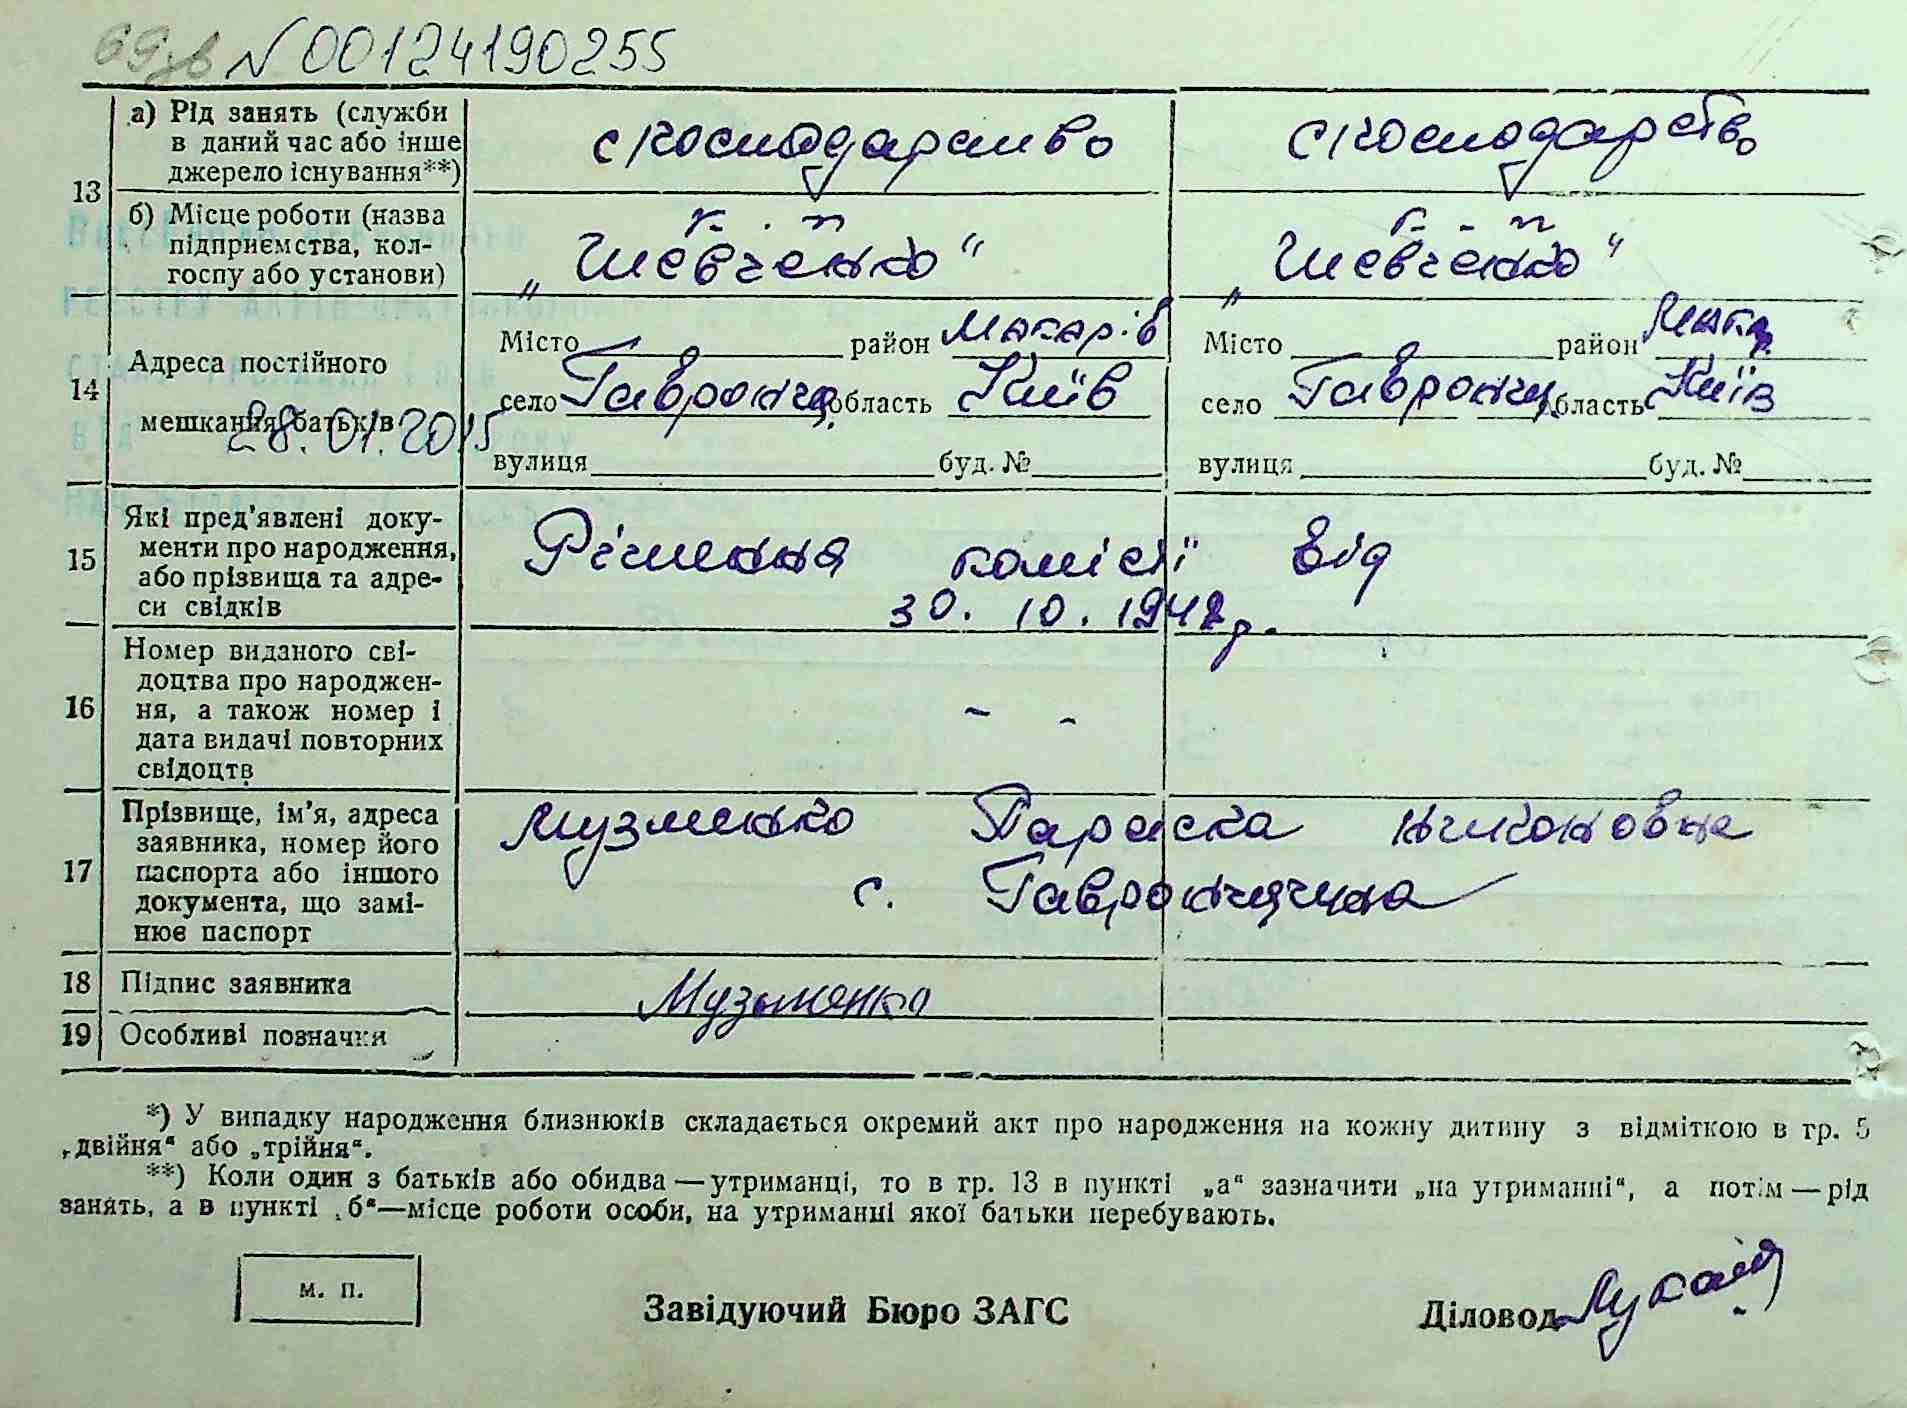 № 00124190255
13
а) Рід занять (служби
в даний час або інше
джерело існування**)
с господарство
с господарство
б) Місце роботи (назва
підприємства, кол-
госпу або установи)
к. п
„Шевченко“
к. - п
„Шевченко“
14
Адреса постійного
мешкання батьків
28.01.2015
Місто район Макарів
село Гавронщ. область Київ
вулиця буд. №
Місто район Макар
село Гавронщ. область Київ
вулиця буд. №
15
Які пред’явлені доку-
менти про народження,
або прізвища та адре-
си свідків
Рішення комісії від
30. 10. 1942 р.
16
Номер виданого сві-
доцтва про народжен-
ня, а також номер і
дата видачі повторних
свідоцтв
- -
17
Прізвище, ім’я, адреса
заявника, номер його
паспорта або іншого
документа, що замі-
нює паспорт
Музменко Параска Никоновна
с. Гавронщчина
18
Підпис заявника
Музыменко
19
Особливі позначки
*) У випадку народження близнюків складається окремий акт про народження на кожну дитину з відміткою в гр. 5
„двійня“ або „трійня“.
**) Коли один з батьків або обидва — утриманці, то в гр. 13 в пункті „а“ зазначити „на утриманні“, а потім — рід
занять, а в пункті „б“—місце роботи особи, на утриманні якої батьки перебувають.
м. п.
Завідуючий Бюро ЗАГС
Діловод